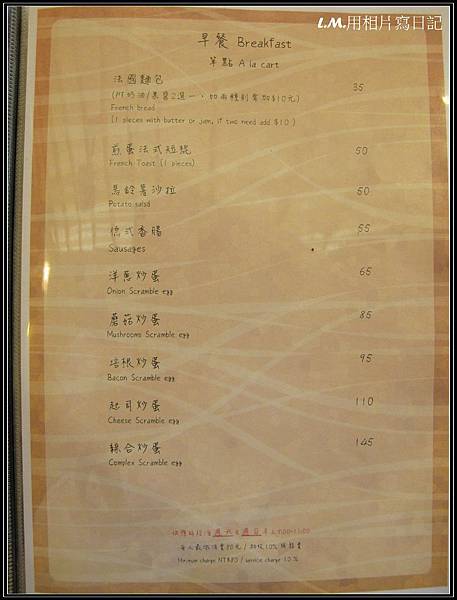 L.M.用相片寫日記
早餐 Breakfast
單點 A la cart
法國麵包 35
(附奶油/果醬2選一、如兩種則需加$10元)
French bread
(1 pieces with butter or jam, if two need add $10 )
煎蛋法式短棍 50
French Toast (1 pieces)
馬鈴薯沙拉 50
Potato salsd
德式香腸 55
Sausages
洋蔥炒蛋 65
Onion Scramble egg
蘑菇炒蛋 85
Mushrooms Scramble egg
培根炒蛋 95
Bacon Scramble egg
起司炒蛋 110
Cheese Scramble egg
綜合炒蛋 145
Complex Scramble egg
供應時段:每週六&週日早上9:00-11:00
每人最低消費80元 / 加收10%服務費
Minimum charge NT$80 / service charge 10%